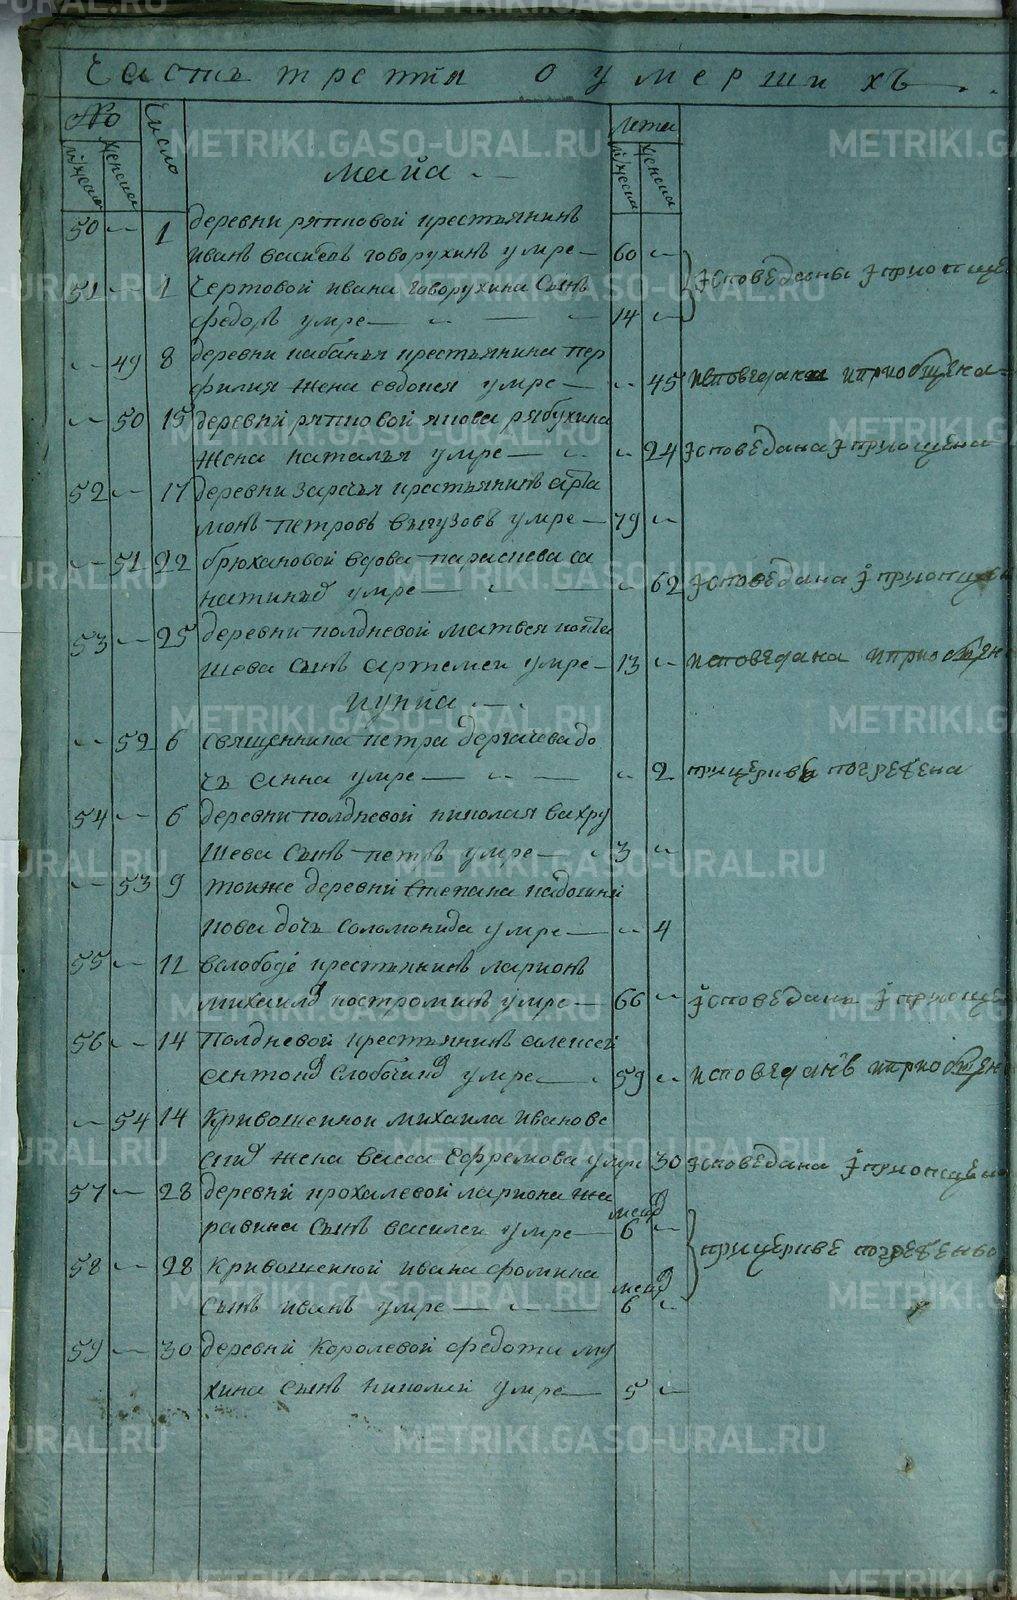 Часть третты о умершихъ
№ Число Лета
мужеска женска мужеска женска
майа
50 — 1 деревни рятковой крестьянинъ
иванъ василевъ говорухинъ умре — 60 —
51 — 1 Чертовой ивана говорухина Сынъ исповеданы и приопще
федоръ умре — 14 —
— 49 8 деревни кабанья крестьянина пер
филия жена евдокея умре — 45 исповедана и приобщена
— 50 15 деревни рятковой якова рябухина
жена наталья умре — 24 исповедана и приопщена
52 — 17 деревни заречья крестьянинъ арта
монъ петровъ выгузовъ умре — 79 —
— 51 22 брюхановой вдова параскева са
умре — 62 исповедана и приопще
53 — 25 деревни полдневой матвея
шева сынъ артемеи умре — 13 — исповедана и приобщен
иунйа
— 52 6 священника петра дергачева до
чъ анна умре — 2 прицеркве погребена
54 — 6 деревни полдневой николая вахру
шева сынъ петръ умре — 3 —
— 53 9 тоиже деревни степана
кова дочъ соломонида умре — 4
55 — 12 вслободе крестьянинъ ларионъ
михаилов костроминъ умре — 66 — исповеданъ и приопще
56 — 14 Полдневой крестьянинъ алексей
антонов слобочиков умре — 59 — исповеданъ и приобщен
— 54 14 Кривошеинои михаила иванове
жена васса ефремова умре 30 исповедана и приопщена
57 — 28 деревни прохалевой лариона жа
равина сынъ василеи умре — месяцов 6 — прицеркве погребены
58 — 28 Кривошеинои ивана фомина
сынъ иванъ умре — месяцов 6 —
59 — 30 деревни королевой федота му
хина сынъ николай умре — 5 —
METRIKI.GASO-URAL.RU